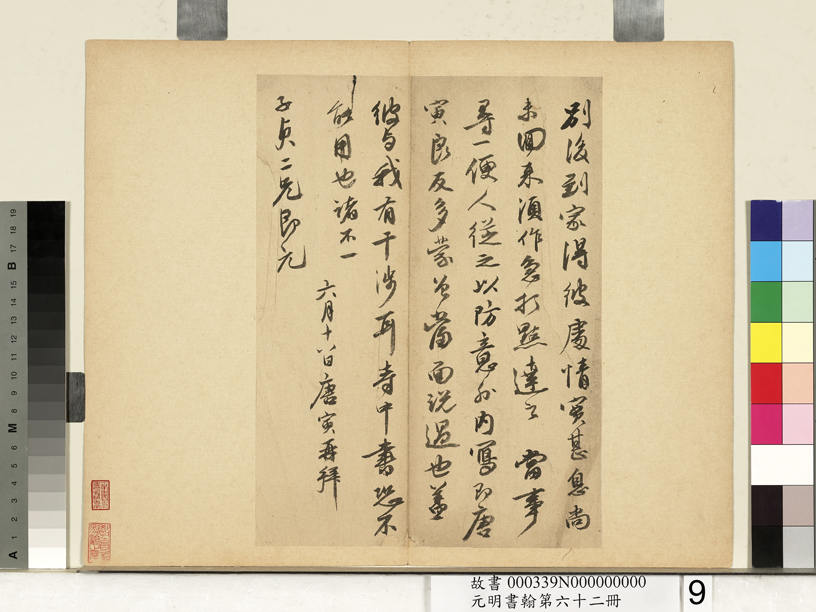 別後到家得彼處情實甚急尚
未回來須作急打點達之
當事
尋一便人從之以防意外內寫即唐
寅良友多蒙公當面說過也蓋
彼与我有干涉耳寺中書恐不
能用也諸不一
六月十八日唐寅再拜
子貞二兄即元
故書 000339N000000000
元明書翰第六十二冊
9
19
18
17
B
16
15
14
13
12
11
10
9
M
8
7
6
5
4
3
2
1
A